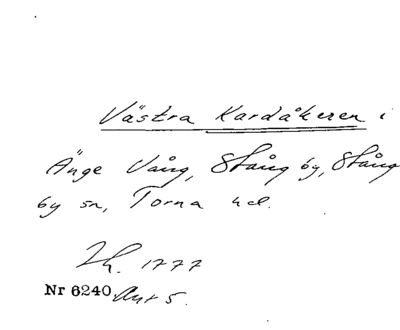 Västra Kardåkeren i
Änge Vång, Stång by, Stång
by sn, Torna hd.
Lh. 1777
Nr 6240 Akt 5.